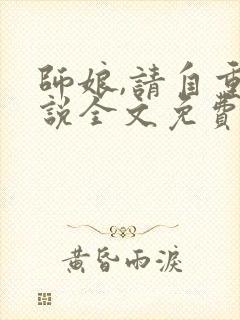 師娘,請自重
說全文免費
黃昏雨淚